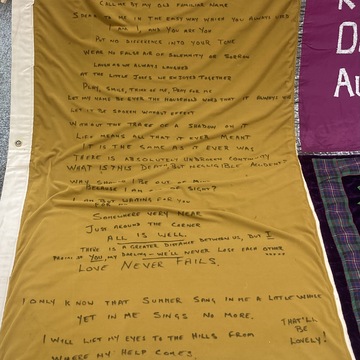 CALL ME BY MY OLD FAMILIAR NAME
SPEAK TO ME IN THE EASY WAY WHICH YOU ALWAYS USED
I AM I AND YOU ARE YOU
PUT NO DIFFERENCE INTO YOUR TONE
WEAR NO FALSE AIR OF SOLEMNITY OR SORROW
LAUGH AS WE ALWAYS LAUGHED
AT THE LITTLE JOKES WE ENJOYED TOGETHER
PLAY, SMILE, THINK OF ME, PRAY FOR ME
LET MY NAME BE EVER THE HOUSEHOLD WORD THAT IT ALWAYS WAS
LET IT BE SPOKEN WITHOUT EFFECT
WITHOUT THE TRACE OF A SHADOW ON IT
LIFE MEANS ALL THAT IT EVER MEANT
IT IS THE SAME AS IT EVER WAS
THERE IS ABSOLUTELY UNBROKEN CONTINUITY
WHAT IS THIS DEATH BUT NEGLIGIBLE ACCIDENT?
WHY SHOULD I BE OUT OF
BECAUSE I AM OF SIGHT?
I AM BUT WAITING FOR YOU
FOR
SOMEWHERE VERY NEAR
JUST AROUND THE CORNER
ALL IS WELL.
THERE IS A GREATER DISTANCE BETWEEN US, BUT I
PROMISE YOU, MY DARLING - WE'LL NEVER LOSE EACH OTHER
LOVE NEVER FAILS.
I ONLY KNOW THAT SUMMER SANG IN ME A LITTLE WHILE
YET IN ME SINGS NO MORE.
THAT'LL
BE
LOVELY!
I WILL LIFT MY EYES TO THE HILLS FROM
WHERE MY HELP COMES.
D
AU